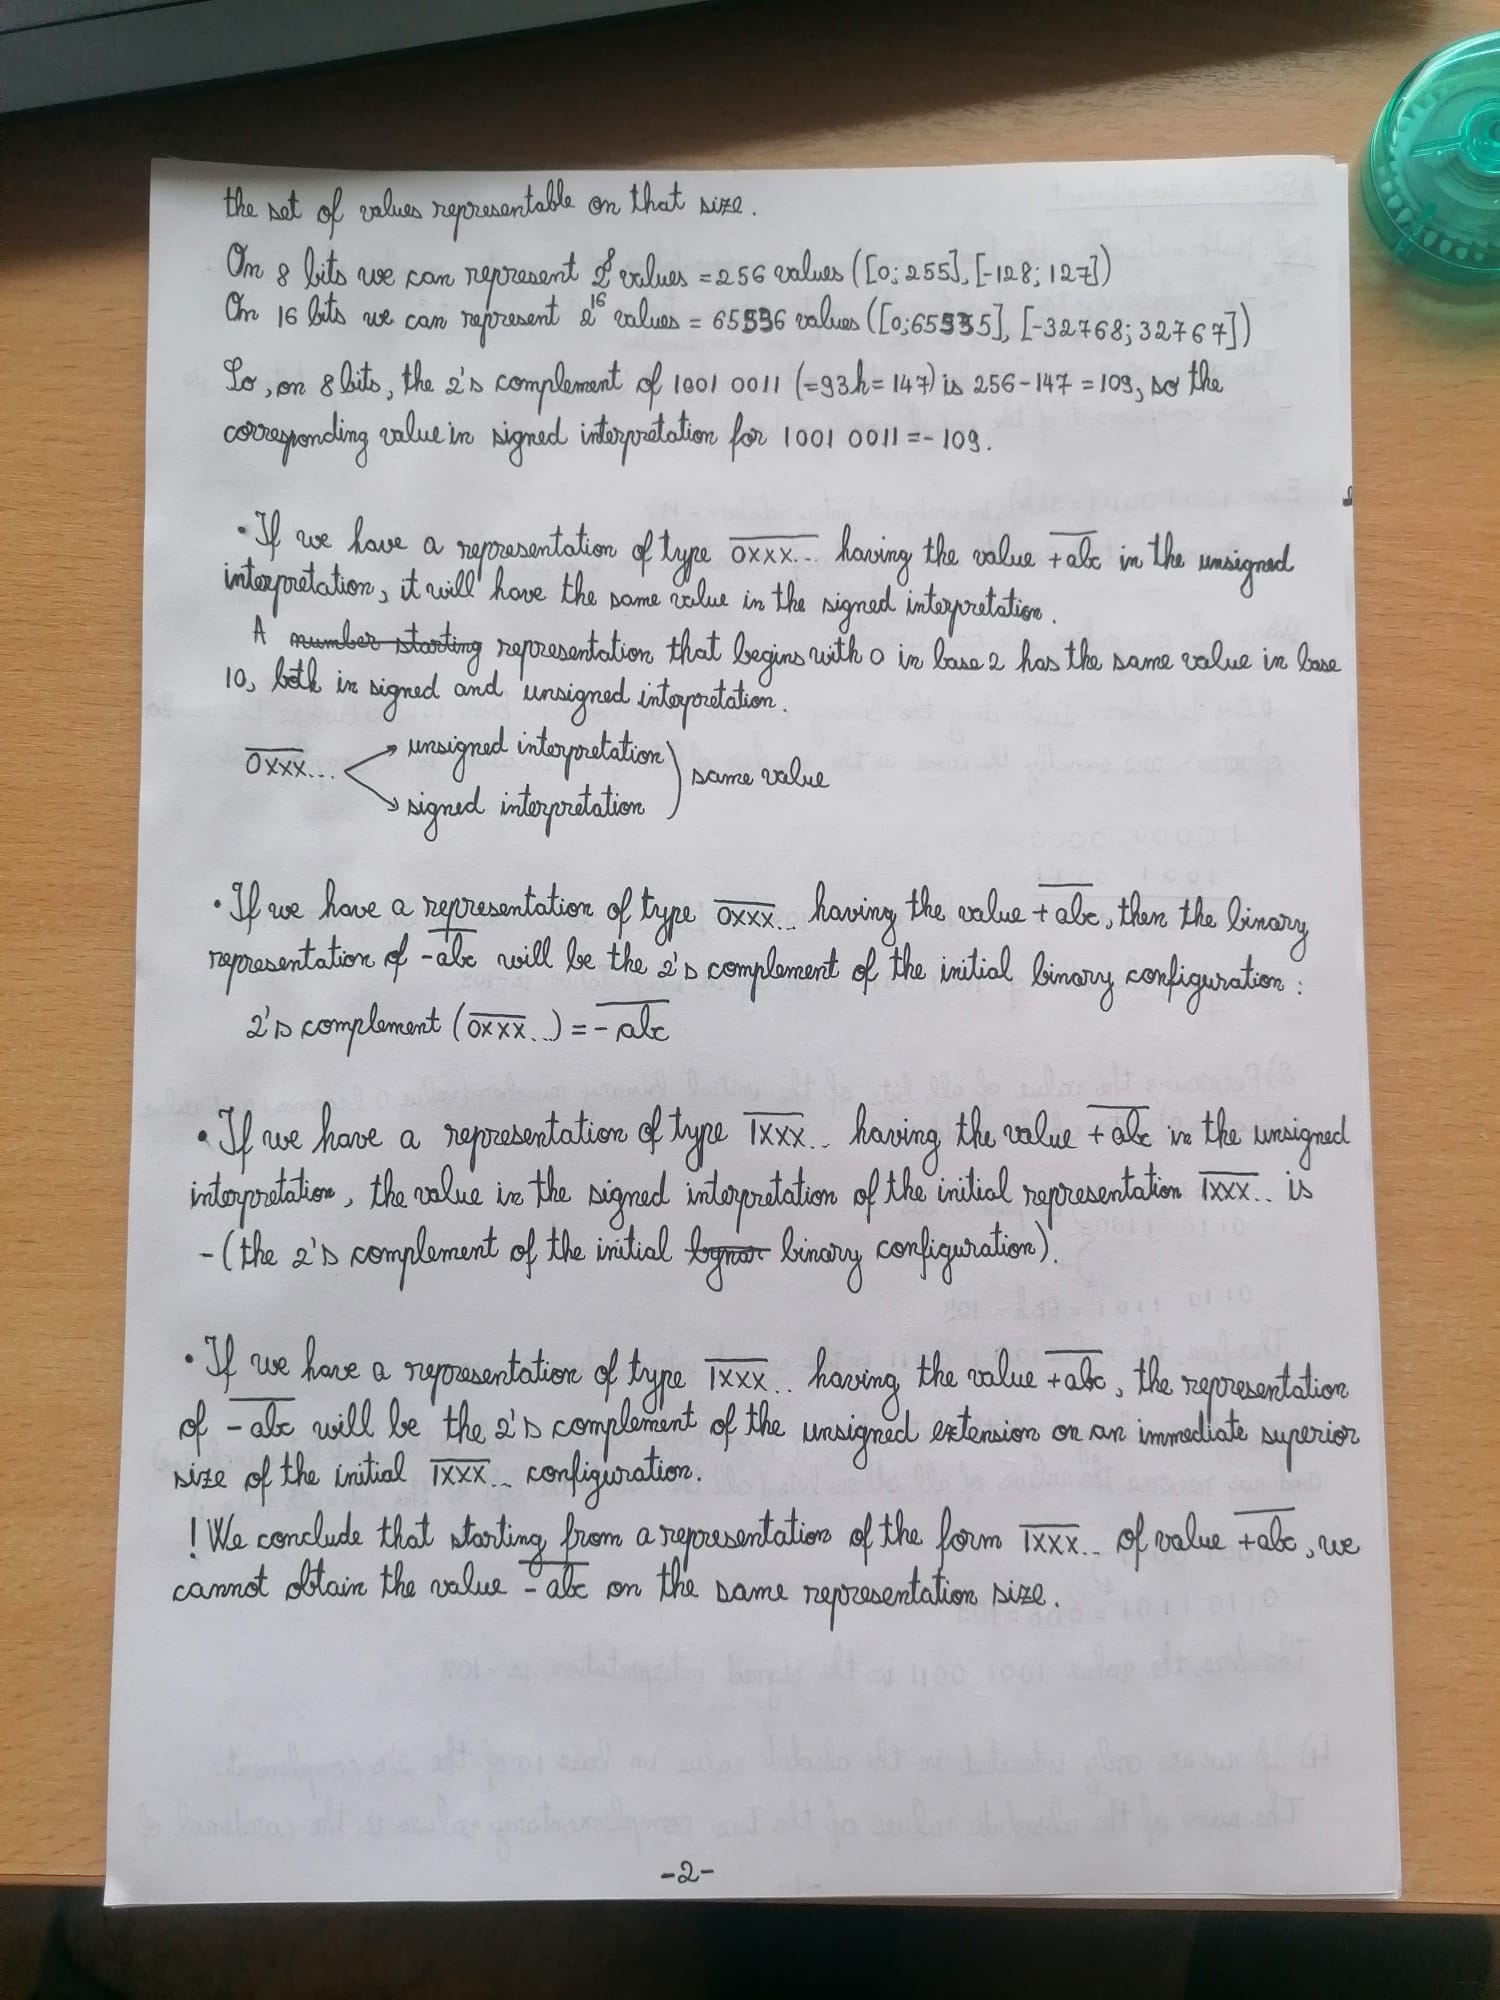 the set of values representable on that size.
On 8 bits we can represent 2⁸ values = 256 values ([0; 255], [-128; 127])
On 16 bits we can represent 2¹⁶ values = 65536 values ([0;65535], [-32768; 32767])
So, on 8 bits, the 2's complement of 1001 0011 (=93h = 147) is 256 - 147 = 109, so the
corresponding value in signed interpretation for 1001 0011 = - 109.
• If we have a representation of type 0xxx... having the value +abc in the unsigned
interpretation, it will have the same value in the signed interpretation.
A number starting representation that begins with 0 in base 2 has the same value in base
10, both in signed and unsigned interpretation.
unsigned interpretation
0xxx... same value
signed interpretation
• If we have a representation of type 0xxx... having the value + abc, then the binary
representation of -abc will be the 2's complement of the initial binary configuration :
2's complement (0xxx...) = - abc
• If we have a representation of type 1xxx.. having the value + abc in the unsigned
interpretation, the value in the signed interpretation of the initial representation 1xxx.. is
- (the 2's complement of the initial binary configuration).
• If we have a representation of type 1xxx.. having the value +abc, the representation
of - abc will be the 2's complement of the unsigned extension on an immediate superior
size of the initial 1xxx... configuration.
! We conclude that starting from a representation of the form 1xxx.. of value +abc, we
cannot obtain the value - abc on the same representation size.
-2-